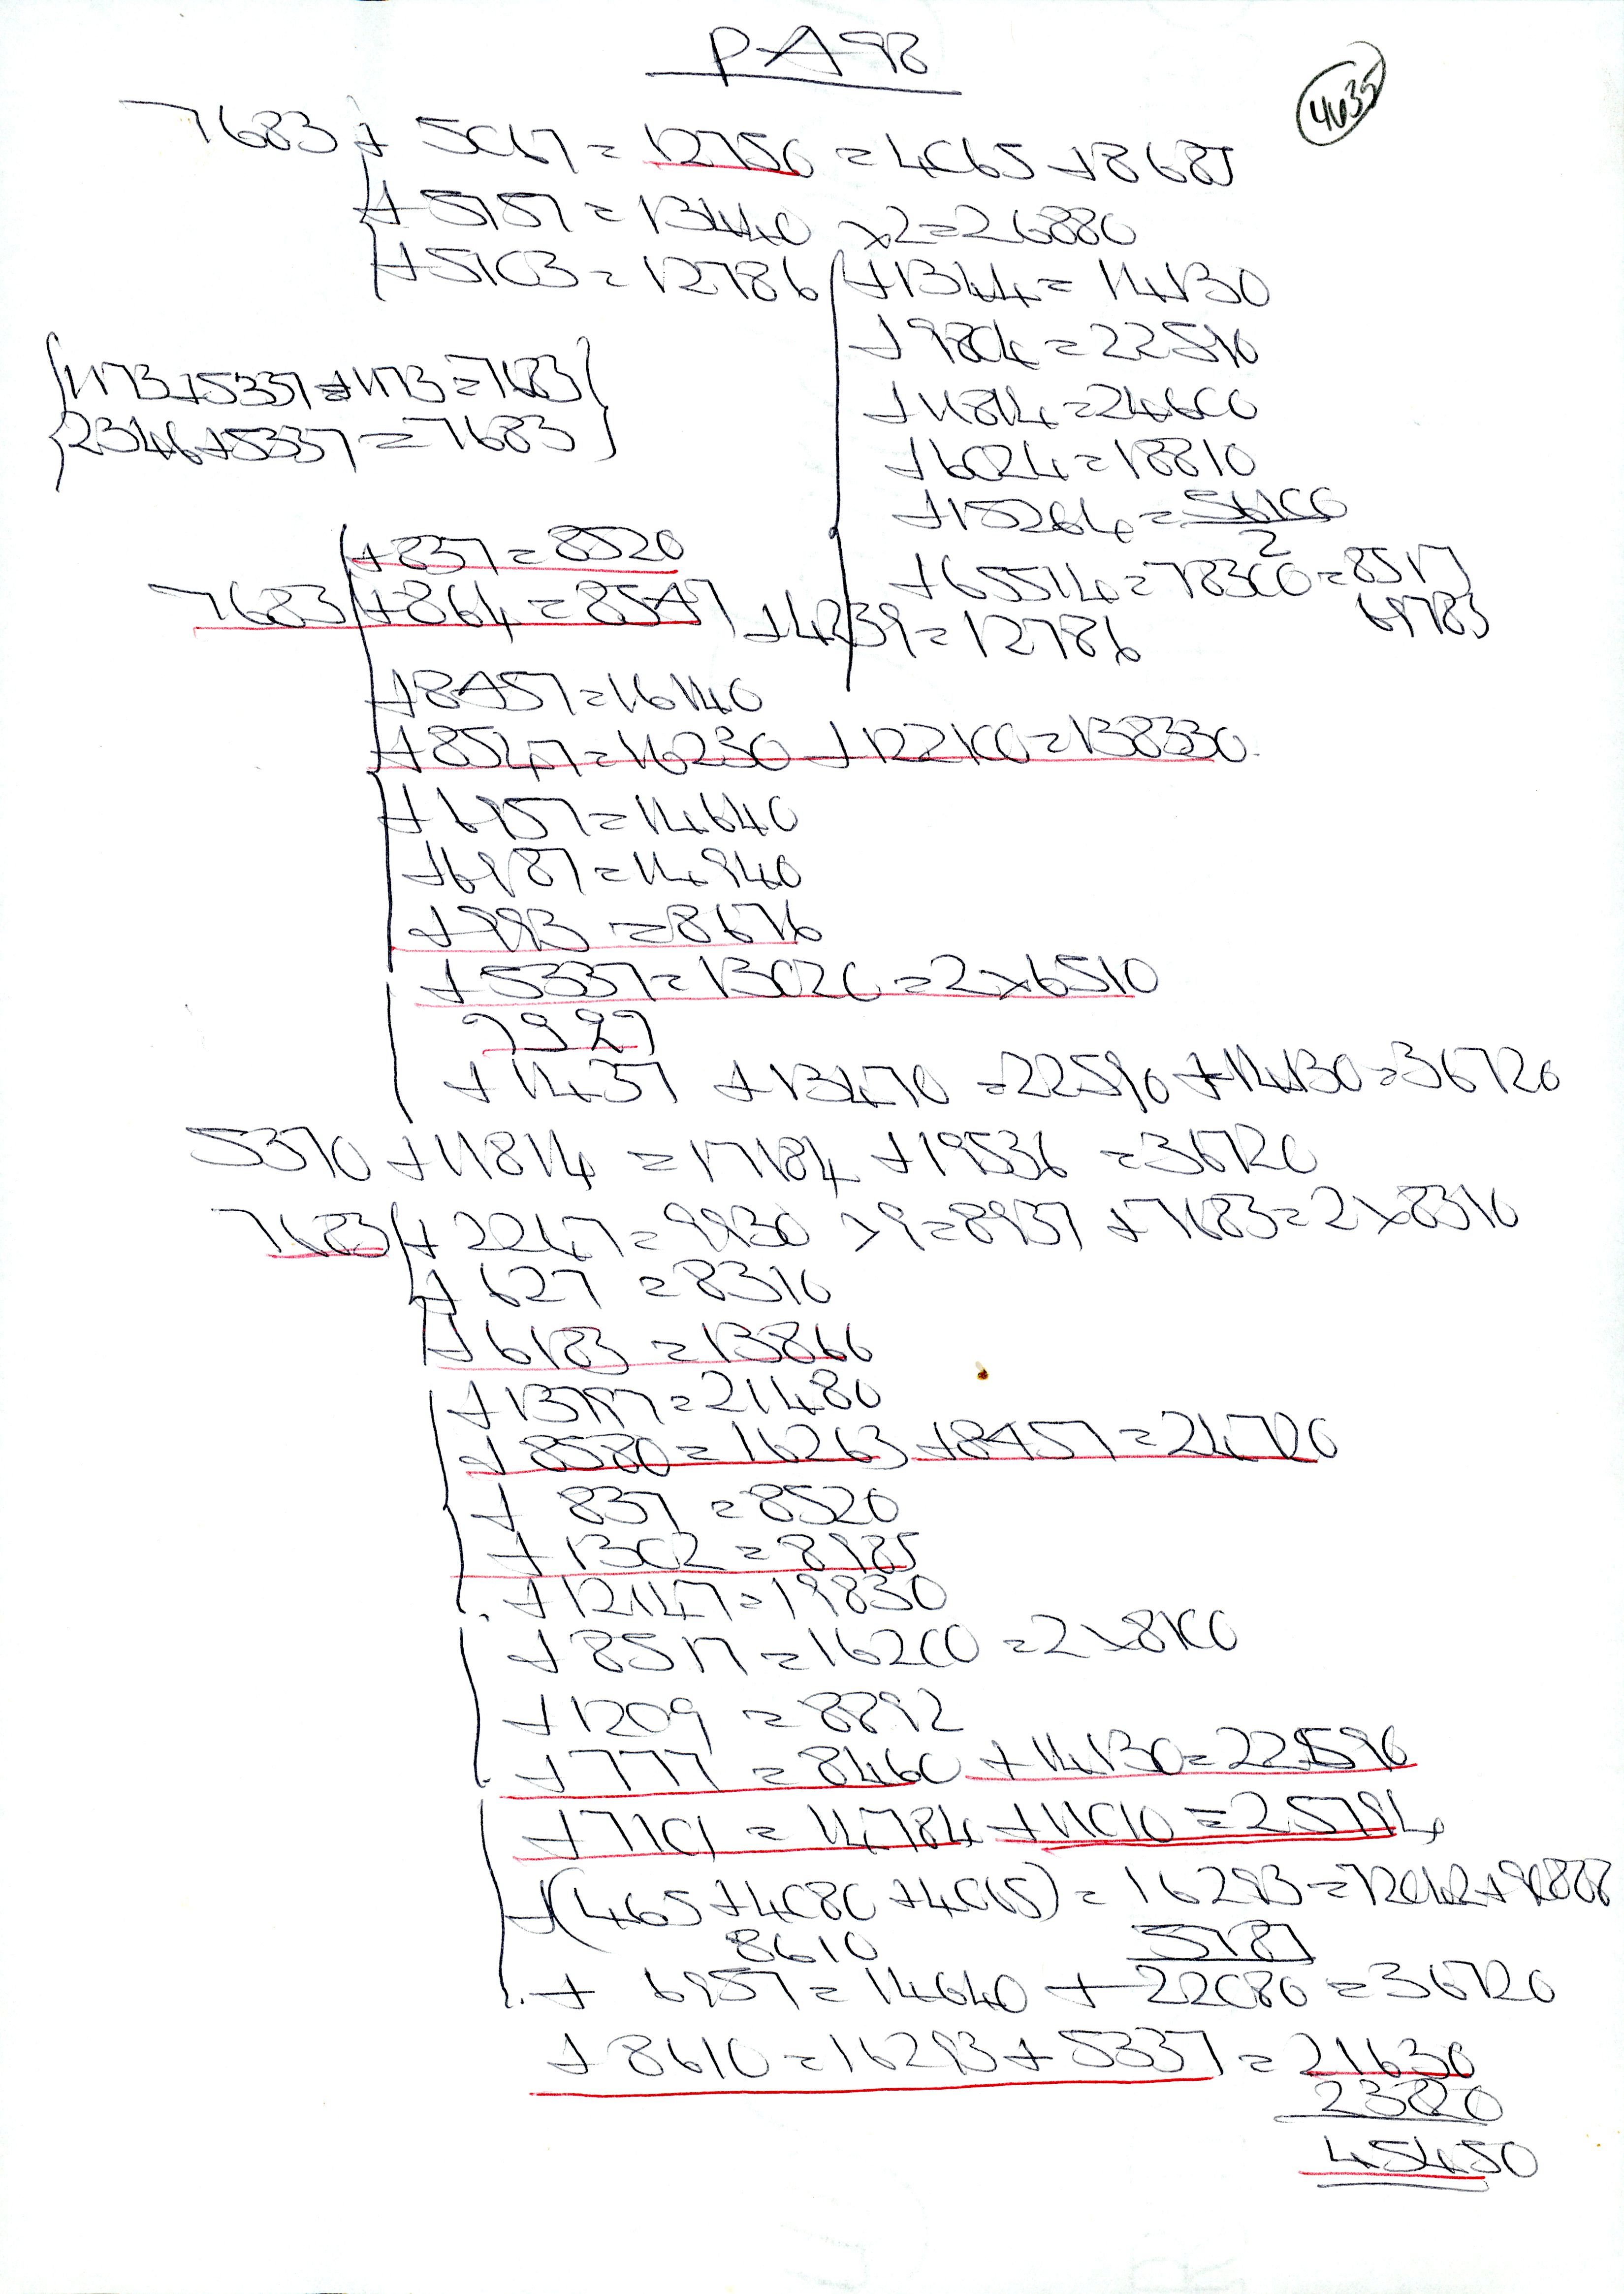 PA98
4635
7683 + 5067 = 12750 = 4065 + 8685
+ 5757 = 13440 × 2 = 26880
+ 5103 = 12786 + 1344 = 14130
+ 9804 = 22590
{1173 + 5337 + 1173 = 7683}
+ 11814 = 24600
{2346 + 5337 = 7683}
+ 6024 = 18810
+ 15264 = 56100
2
+ 837 = 8520
+ 65514 = 78300 = 8517
69783
7683 + 864 = 8547 + 4239 = 12786
+ 8457 = 16140
+ 8547 = 16230 + 122100 = 138330
+ 6957 = 14640
+ 6987 = 14940
+ 993 = 8676
+ 5337 = 13020 = 2 × 6510
7927
+ 1437 + 13470 = 22590 + 14130 = 36720
5370 + 11814 = 17184 + 19536 = 36720
7683 + 2247 = 9930 × 9 = 8937 + 7683 = 2 × 8310
+ 627 = 8310
+ 6183 = 13866
+ 13797 = 21480
+ 8580 = 16263 + 8457 = 24720
+ 837 = 8520
+ 1302 = 8985
+ 12147 = 19830
+ 8517 = 16200 = 2 × 8100
+ 1209 = 8892
+ 777 = 8460 + 14130 = 22590
+ 7101 = 14784 + 11010 = 25794
+ (465 + 4080 + 4065) = 16293 =
8610
+ 6957 = 14640 + 22080 = 36720
+ 8610 = 16293 + 5337 = 21630
23820
45450